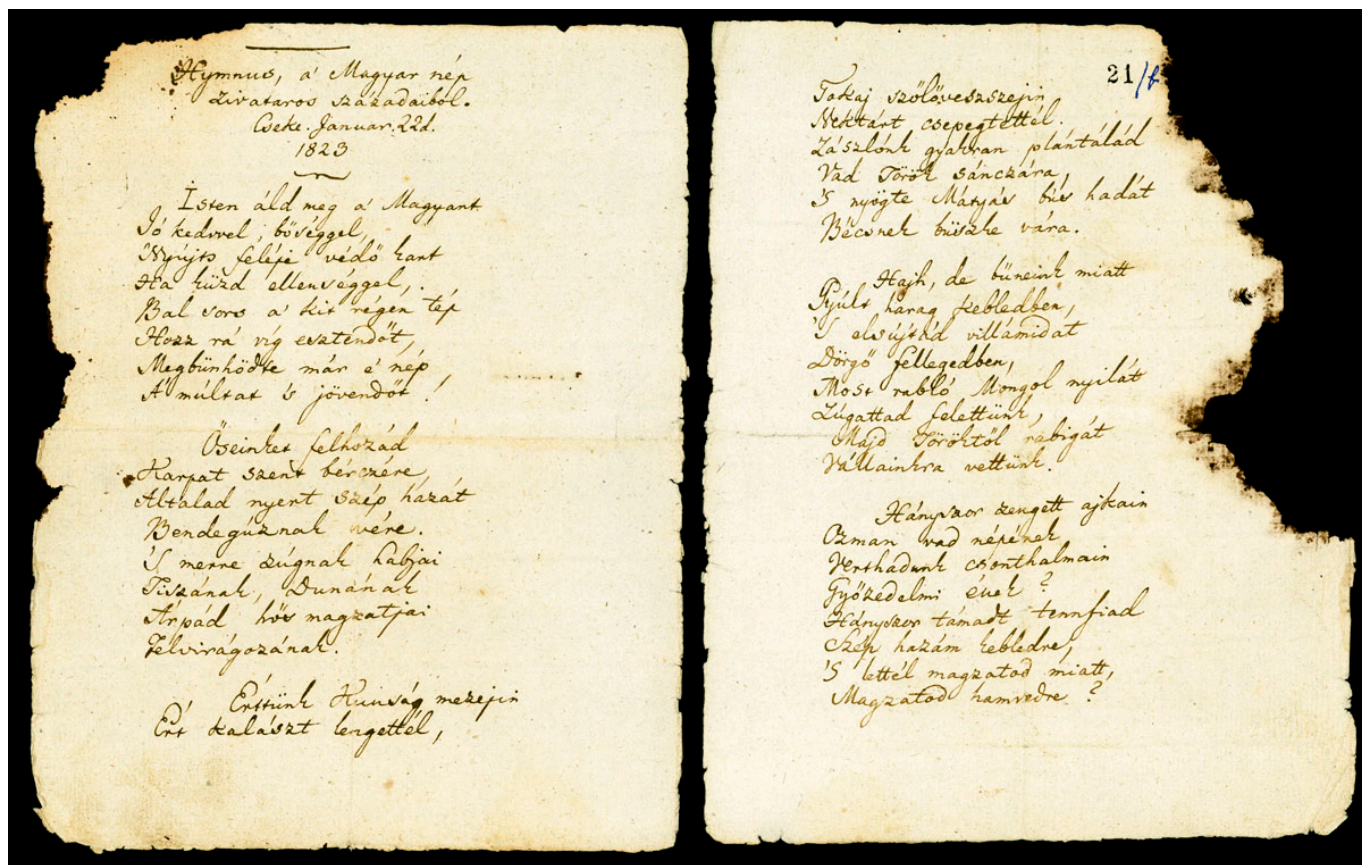 Hymnus, a' Magyar nép
zivataros századaiból.
Cseke. Januar. 22d.
1823
Isten áld meg a' Magyart
Jó kedvvel, bőséggel,
Nyújts feléje védő kart
Ha küzd ellenséggel,
Bal sors a' kit régen tép
Hozz rá víg esztendőt,
Megbünhödte már e' nép
A' múltat 's jövendőt!
Őseinket felhozád
Kárpát szent bérczére
Általad nyert szép hazát
Bendegúznak vére.
'S merre zúgnak habjai
Tiszának, Dunának
Árpád hős magzatjai
Felvirágozának.
Érttünk Kunság mezejin
Ért kalászt lengettél,
21/b
Tokaj szőlővesszejin
Nektárt csepegtettél.
Zászlónk gyakran plántálád
Vad Török sánczára,
'S nyögte Mátyás bús hadát
Bécsnek büszke vára.
Hajh, de bűneink miatt
Gyúlt harag kebledben,
'S elsújtád villámidat
Dörgő fellegedben,
Most rabló Mongol nyilát
Zúgattad felettünk,
Majd Töröktől rabigát
Vállainkra vettünk.
Hányszor zengett ajkain
Ozman vad népének
Verthadunk csonthalmain
Győzedelmi ének?
Hányszor támadt tennfiad
Szép hazám kebledre,
'S lettél magzatod miatt,
Magzatod hamvedre?